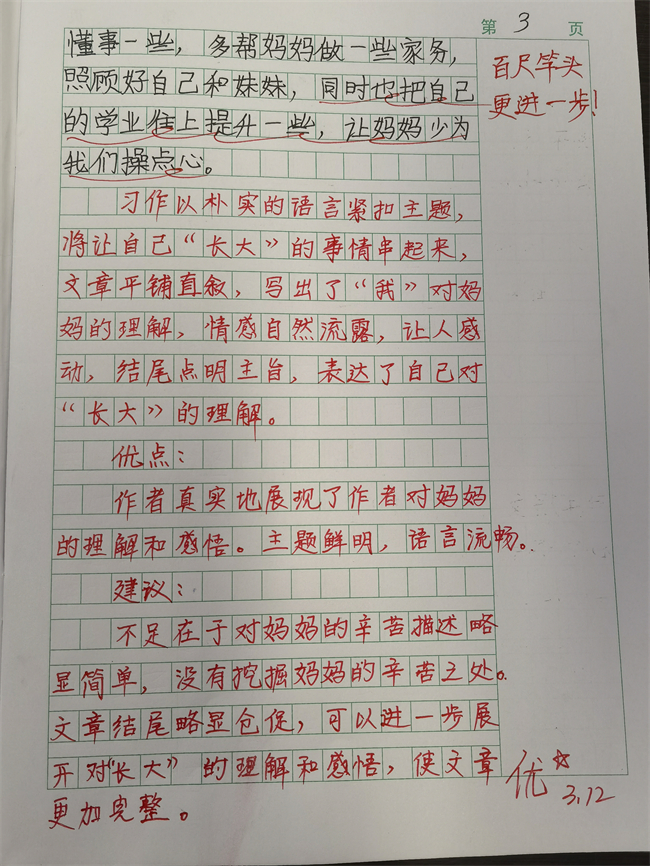 第 3 页
懂事一些，多帮妈妈做一些家务，
照顾好自己和妹妹，同时也把自己
的学业往上提升一些，让妈妈少为
我们操点心。
百尺竿头
更进一步！
习作以朴实的语言紧扣主题，
将让自己“长大”的事情串起来，
文章平铺直叙，写出了“我”对妈
妈的理解，情感自然流露，让人感
动，结尾点明主旨，表达了自己对
“长大”的理解。
优点：
作者真实地展现了作者对妈妈
的理解和感悟。主题鲜明，语言流畅。
建议：
不足在于对妈妈的辛苦描述略
显简单，没有挖掘妈妈的辛苦之处。
文章结尾略显仓促，可以进一步展
开对“长大”的理解和感悟，使文章
更加完整。
优☆
3.12